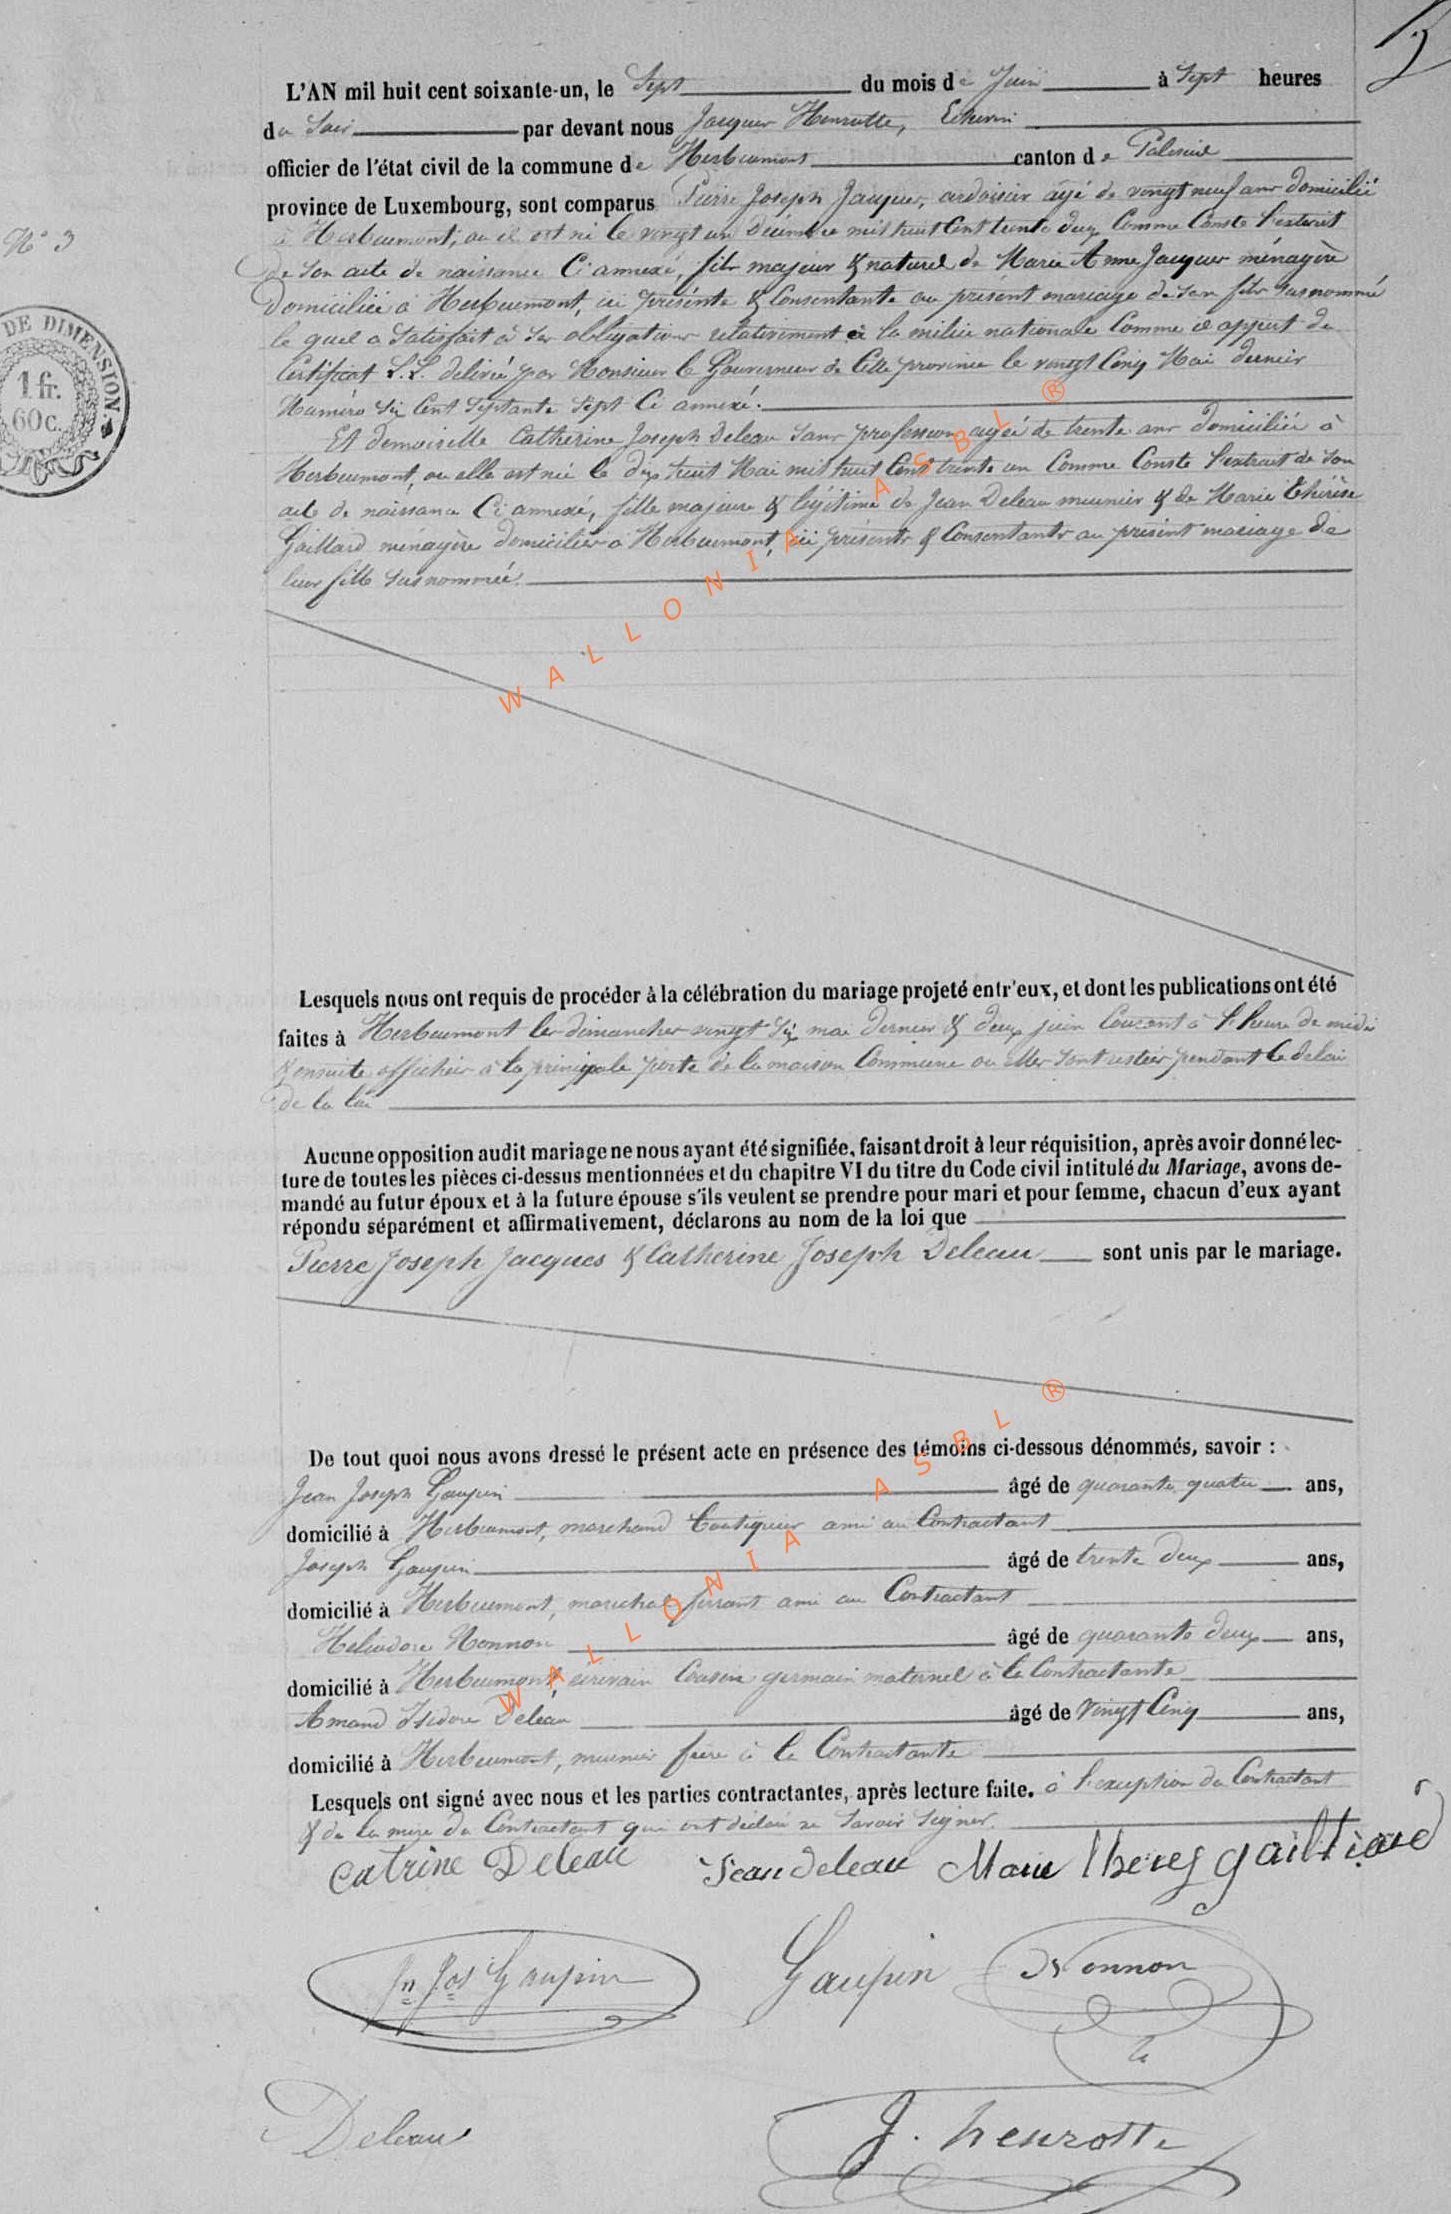 L'AN mil huit cent soixante-un, le Sept du mois de Juin à Sept heures
du Soir par devant nous Jacques Henrotte, Echevin
officier de l'état civil de la commune de Herbeumont canton de Paliseul
province de Luxembourg, sont comparus Pierre Joseph Jacques, ardoisier âgé de vingt neuf ans domicilié
N° 3
à Herbeumont, ou il est né le vingt un Décembre mil huit Cent trente deux Comme Conste l'extrait
de Son acte de naissance Ci annexé, fils majeur & naturel de Marie Anne Jacques ménagère
Domiciliée à Herbeumont, ici présente & Consentante au present mariage de son fils Susnommé
le quel a Satisfait à Ses obligations relativement à la milice nationale Comme il appert du
DE DIMENSION.
1 fr.
60 c.
Certificat L.L. délivré par Monsieur le Gouverneur de Cette province le vingt Cinq Mai dernier
Numéro Six Cent Septante Sept Ci annexé.
Et demoiselle Catherine Joseph Deleau Sans profession agée de trente ans domiciliée à
Herbeumont, ou elle est née le dix huit Mai mil huit Cent trente un Comme Conste l'extrait de Son
acte de naissance Ci annexé, fille majeure & légitime de Jean Deleau meunier & de Marie Thérèse
Gaillard ménagère domiciliés à Herbeumont, ici présents & Consentants au présent mariage de
leur fille Susnommée.
WALLONIA ASBL ®
Lesquels nous ont requis de procéder à la célébration du mariage projeté entr'eux, et dont les publications ont été
faites à Herbeumont les dimanches vingt Six mai dernier & deux juin Courant à l'heure de midi
& ensuite affichées à la principale porte de la maison Commune ou elles sont restées pendant le delai
de la loi
Aucune opposition audit mariage ne nous ayant été signifiée, faisant droit à leur réquisition, après avoir donné lec-
ture de toutes les pièces ci-dessus mentionnées et du chapitre VI du titre du Code civil intitulé du Mariage, avons de-
mandé au futur époux et à la future épouse s'ils veulent se prendre pour mari et pour femme, chacun d'eux ayant
répondu séparément et affirmativement, déclarons au nom de la loi que
Pierre Joseph Jacques & Catherine Joseph Deleau sont unis par le mariage.
De tout quoi nous avons dressé le présent acte en présence des témoins ci-dessous dénommés, savoir :
Jean Joseph Gaupin âgé de quarante quatre ans,
domicilié à Herbeumont, marchand boutiquier ami au Contractant
Joseph Gaupin âgé de trente deux ans,
domicilié à Herbeumont, marechal ferrant ami au Contractant
Heliodore Nonnon âgé de quarante deux ans,
domicilié à Herbeumont, écrivain Cousin germain maternel à la Contractante
Amand Isidore Deleau âgé de Vingt Cinq ans,
domicilié à Herbeumont, meunier frère à la Contractante
Lesquels ont signé avec nous et les parties contractantes, après lecture faite. à l'exception du Contractant
& de la mère du Contractant qui ont déclaré ne Savoir Signer.
WALLONIA ASBL ®
Catrine Deleau Jean deleau Marie
Jn Jos Gaupin Gaupin Nonnon
Deleau J. henrotte